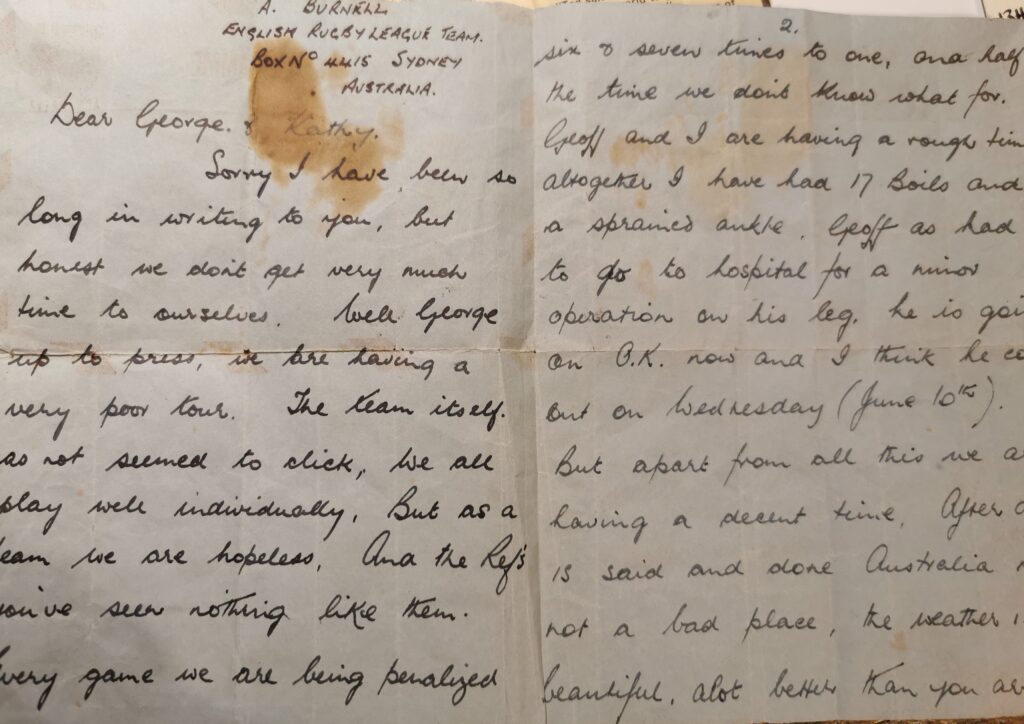 A. BURNELL
ENGLISH RUGBY LEAGUE TEAM.
BOX Nº 4415 SYDNEY
AUSTRALIA.
Dear George. & Kathy.
Sorry I have been so
long in writing to you, but
honest we dont get very much
time to ourselves. Well George
up to press, we are having a
very poor tour. The team itself.
as not seemed to click, We all
play well individually, But as a
team we are hopeless, And the Refs
you've seen nothing like them.
Every game we are being penalized
2.
six & seven times to one, and half
the time we dont know what for.
Geoff and I are having a rough tim
altogether I have had 17 Boils and
a sprained ankle. Geoff as had
to go to hospital for a minor
operation on his leg. he is goi
on O.K. now and I think he co
out on Wednesday (June 10th).
But apart from all this we a
having a decent time, After a
is said and done Australia
not a bad place, the weather i
beautiful, alot better than you ar